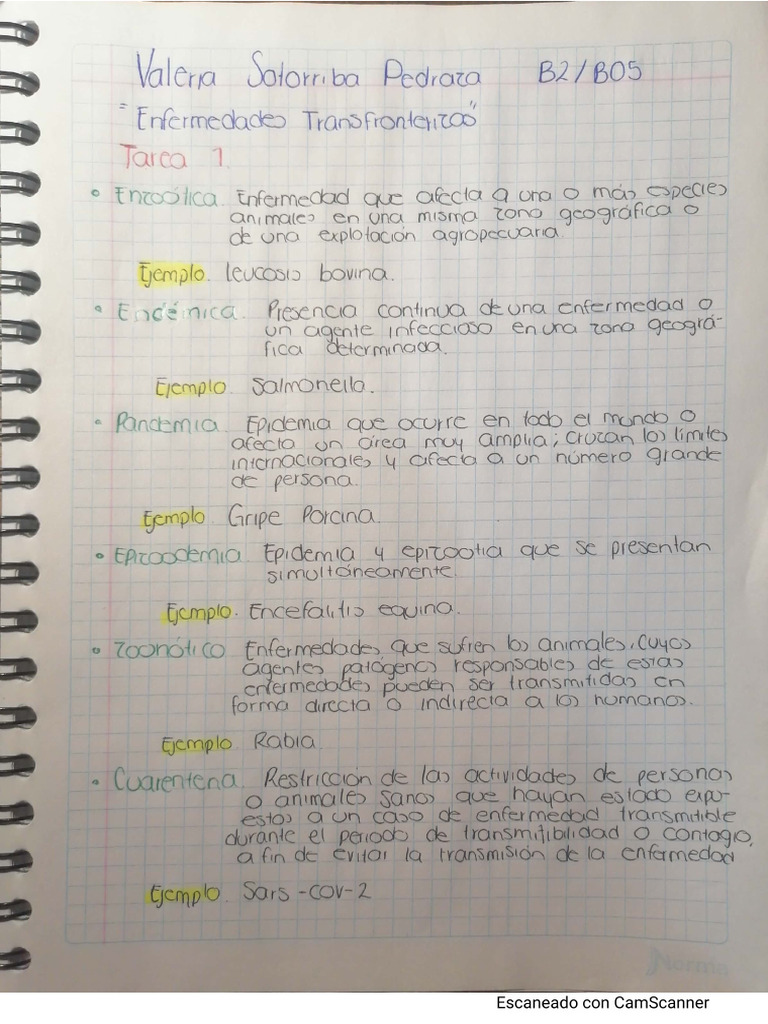 Valeria Sotorriba Pedraza B2/B05
"Enfermedades Transfronterizas"
Tarea 1.
• Enzoótica. Enfermedad que afecta a una o más especies
animales en una misma zona geográfica o
de una explotación agropecuaria.
Ejemplo. Leucosis bovina.
• Endémica. Presencia continua de una enfermedad o
un agente infeccioso en una zona geográ-
fica determinada.
Ejemplo. Salmonella.
• Pandemia. Epidemia que ocurre en todo el mundo o
afecta un área muy amplia; cruzan los límites
internacionales y afecta a un número grande
de persona.
Ejemplo. Gripe Porcina.
• Epizoodemia. Epidemia y epizootia que se presentan
simultáneamente.
Ejemplo. Encefalitis equina.
• Zoonótico. Enfermedades que sufren los animales, cuyos
agentes patógenos responsables de estas
enfermedades pueden ser transmitidas en
forma directa o indirecta a los humanos.
Ejemplo. Rabia.
• Cuarentena. Restricción de las actividades de personas
o animales sanos que hayan estado expu-
estos a un caso de enfermedad transmitible
durante el periodo de transmitibilidad o contagio,
a fin de evitar la transmisión de la enfermedad
Ejemplo. Sars-cov-2
Norma
Escaneado con CamScanner